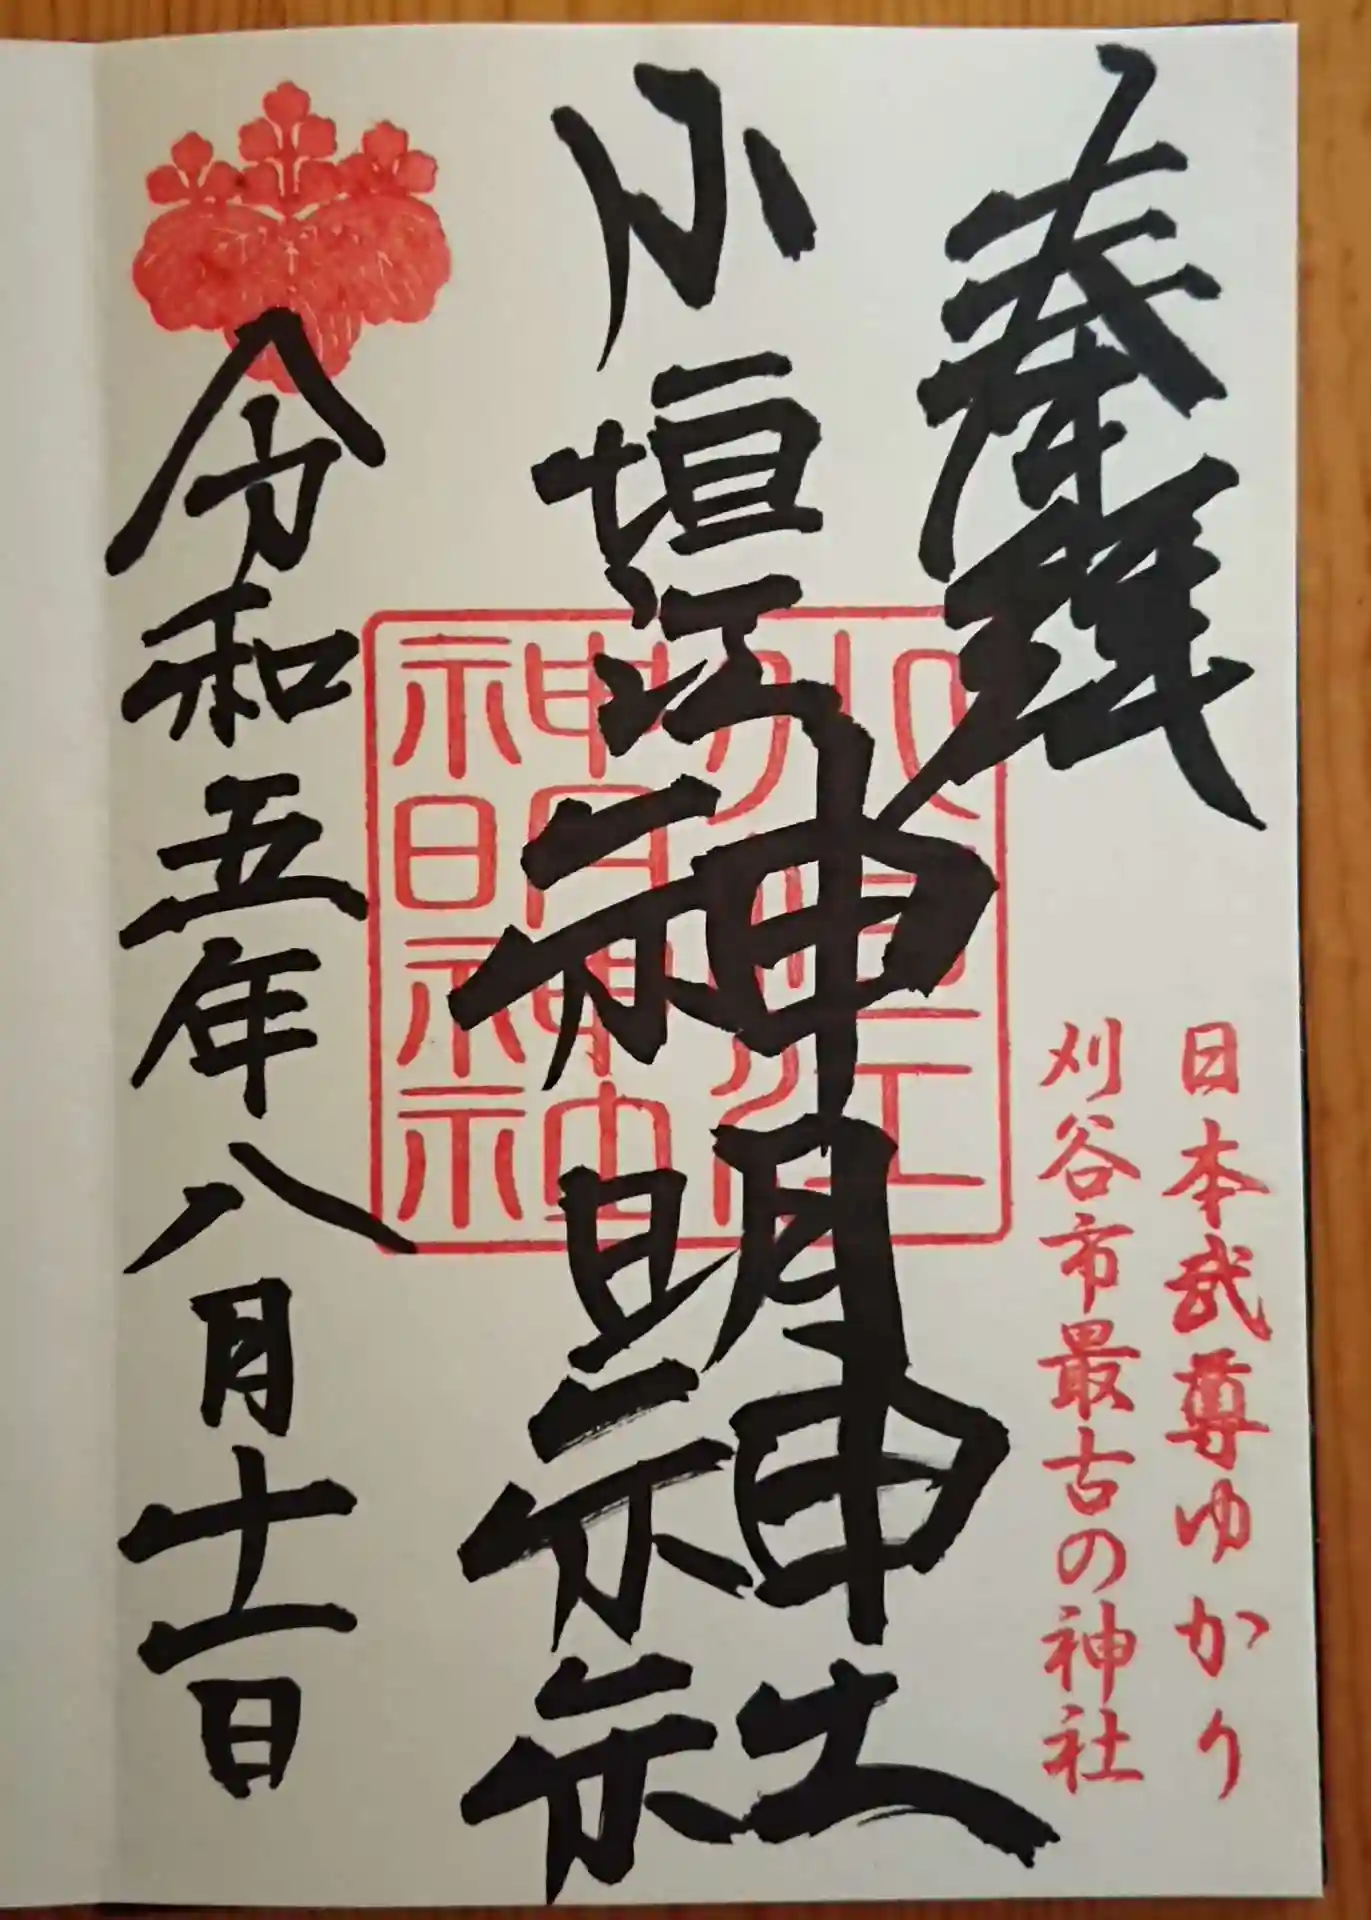 奉拝
日本武尊ゆかり
刈谷市最古の神社
小垣江神明神社
小垣江
神明神
社明神社
令和五年八月十一日